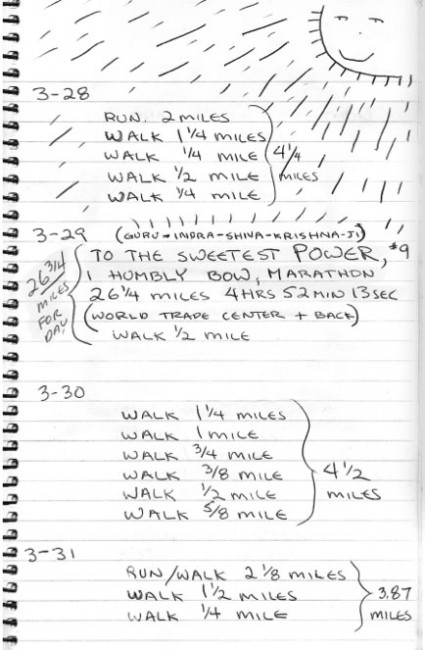 3-28
RUN. 2 MILES
WALK 1 1/4 MILES
WALK 1/4 MILE
WALK 1/2 MILE
WALK 1/4 MILE
4 1/4
MILES
3-29
(GURU-INDRA-SHIVA-KRISHNA-JI)
TO THE SWEETEST POWER, #9
I HUMBLY BOW, MARATHON
26 1/4 MILES 4HRS 52MIN 13SEC
(WORLD TRADE CENTER + BACK)
WALK 1/2 MILE
26 3/4
MILES
FOR
DAY
3-30
WALK 1 1/4 MILES
WALK 1 MILE
WALK 3/4 MILE
WALK 3/8 MILE
WALK 1/2 MILE
WALK 5/8 MILE
4 1/2
MILES
3-31
RUN/WALK 2 1/8 MILES
WALK 1 1/2 MILES
WALK 1/4 MILE
3.87
MILES